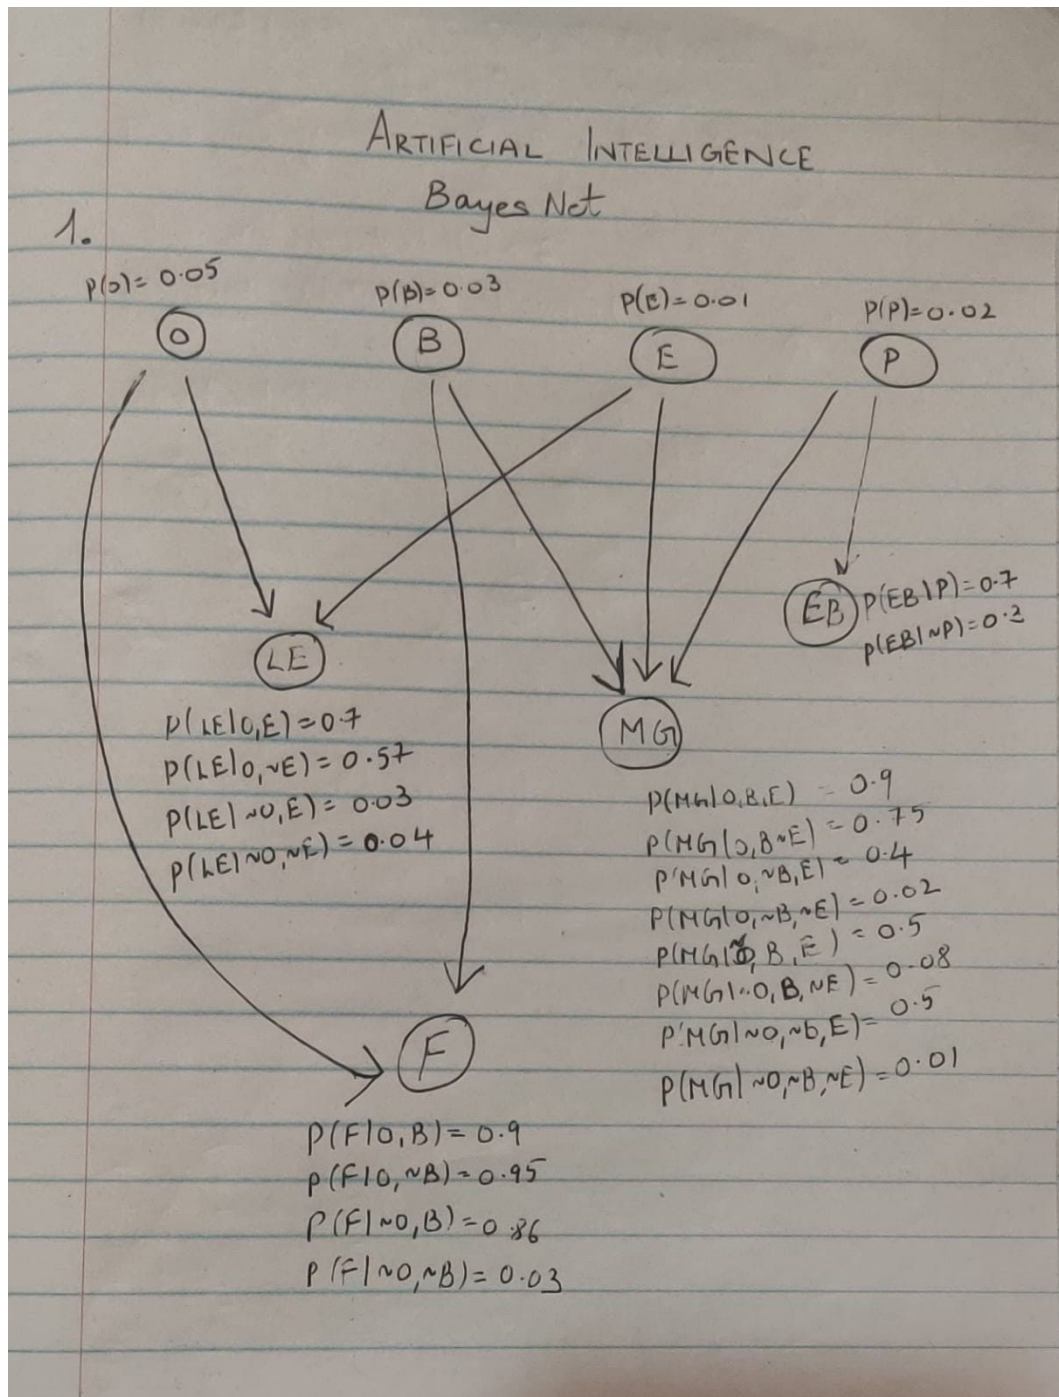 ARTIFICIAL INTELLIGENCE
Bayes Net
1.
P(O)= 0.05
P(B)= 0.03
P(E)= 0.01
P(P)=0.02
O
B
E
P
EB
P(EB|P)=0.7
P(EB|~P)=0.2
LE
P(LE|O,E)=0.7
P(LE|O,~E)= 0.57
P(LE|~O,E)= 0.03
P(LE|~O,~E)= 0.04
MG
P(MG|O,B,E) = 0.9
P(MG|O,B~E) = 0.75
P(MG|O,~B,E) = 0.4
P(MG|O,~B,~E) = 0.02
P(MG|~O, B, E) = 0.5
P(MG|~O, B, ~E) = 0.08
P(MG|~O,~b,E)= 0.5
P(MG|~O,~B,~E)=0.01
F
P(F|O,B)= 0.9
P(F|O,~B)= 0.95
P(F|~O,B)=0.86
P(F|~O,~B)= 0.03